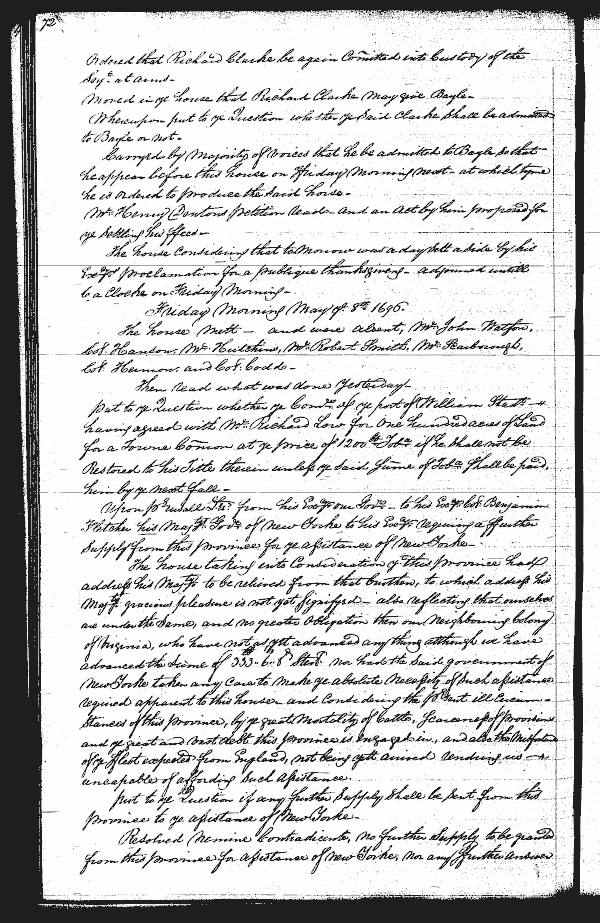 72
Ordered that Richard Clarke be again Comitted into Custody of the
Serjt. at arms.
Moved in ye house that Richard Clarke may give Bayle.
Whereupon put to ye Question whether ye Said Clarke Shall be admitted
to Bayle or not.
Carryed by Majority of voices that he be admitted to Bayle So that
he appear before this house on Friday Morning next at which tyme
he is ordered to produce the Said horse.
Mr. Henry Dentons petition read and an Act by him proposed for
ye Settling his ffees.
The house Considering that to Morrow was a day Sett aside by his
Excys. proclamation for a publique thanksgiving adjourned untill
6 a Clocke on Friday Morning.
Friday Morning May ye 8th 1696.
The house Mett and were absent, Mr. John Watson,
Col. Hanson, Mr. Hutchins, Mr. Robert Smith, Mr. Scarborough,
Col. Herman, and Col. Codd.
Then read what was done Yesterday
put to ye Question whether ye Comrs. of ye port of William Stadt
having agreed with Mr. Richard Low for One hundred acres of Land
for a Towne Comon at ye price of 1200 lb Tobo. if he Shall not be
Restored to his Title therein unless ye Said Sume of Tobo. Shall be paid
him by ye next fall.
Upon perusall Lre. from his Excy. our Govr. to his Excy. Col. Benjamin
Fletcher his Majts. Govr. of New Yorke to his Excy. requiring a ffurther
Supply from this Province for ye assistance of New Yorke.
The house taking into Consideration yt this province had
address his Majty. to be relieved from that burthen, to which address his
Majts. gracious pleasure is not yet Signifyed also reflecting that ourselves
are under the Same, and no greater Obligation then our Neighbouring Colony
of Virginia, who have not as yett advanced any thing although we have
advanced the Sume of 333. 6. 8 Sterl. nor had the Said government of
New Yorke taken any Care to make ye absolute Necessity of Such assistance
required apparent to this house and Considering the prsent ill Circum-
stances of this province, by ye great Mortality of Cattle, Scarceness of provisions
and ye great and vast debt this Province is engaged in, and also the Misfortune
of ye fleet expected from England, not being yett arrived rendring us
uncapable of affording Such assistance.
put to ye Question if any further Supply Shall be Sent from this
province to ye assistance of New Yorke.
Resolved Nemine Contradicente, no further Supply to be granted
from this province for assistance of New Yorke, nor any ffurther answer